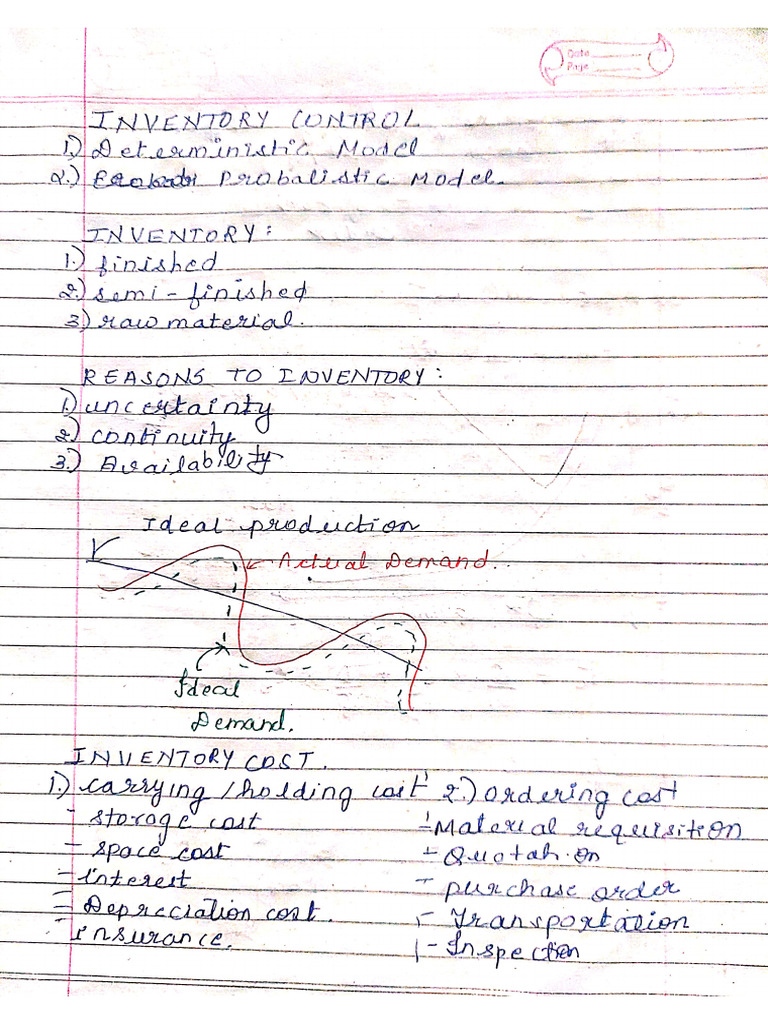 Date
Page
INVENTORY CONTROL
1.) Deterministic Model
2.) Probalistic Model.
INVENTORY:
1.) finished
2.) semi-finished
3.) raw material.
REASONS TO INVENTORY:
1.) uncertainty
2.) continuity
3.) Availability
Ideal production
Actual Demand.
Ideal
Demand.
INVENTORY COST.
1.) carrying/holding cost
- storage cost
- space cost
- interest
- Depreciation cost.
- insurance.
2.) ordering cost
- Material requisition
- Quotation
- purchase order
- Transportation
- Inspection